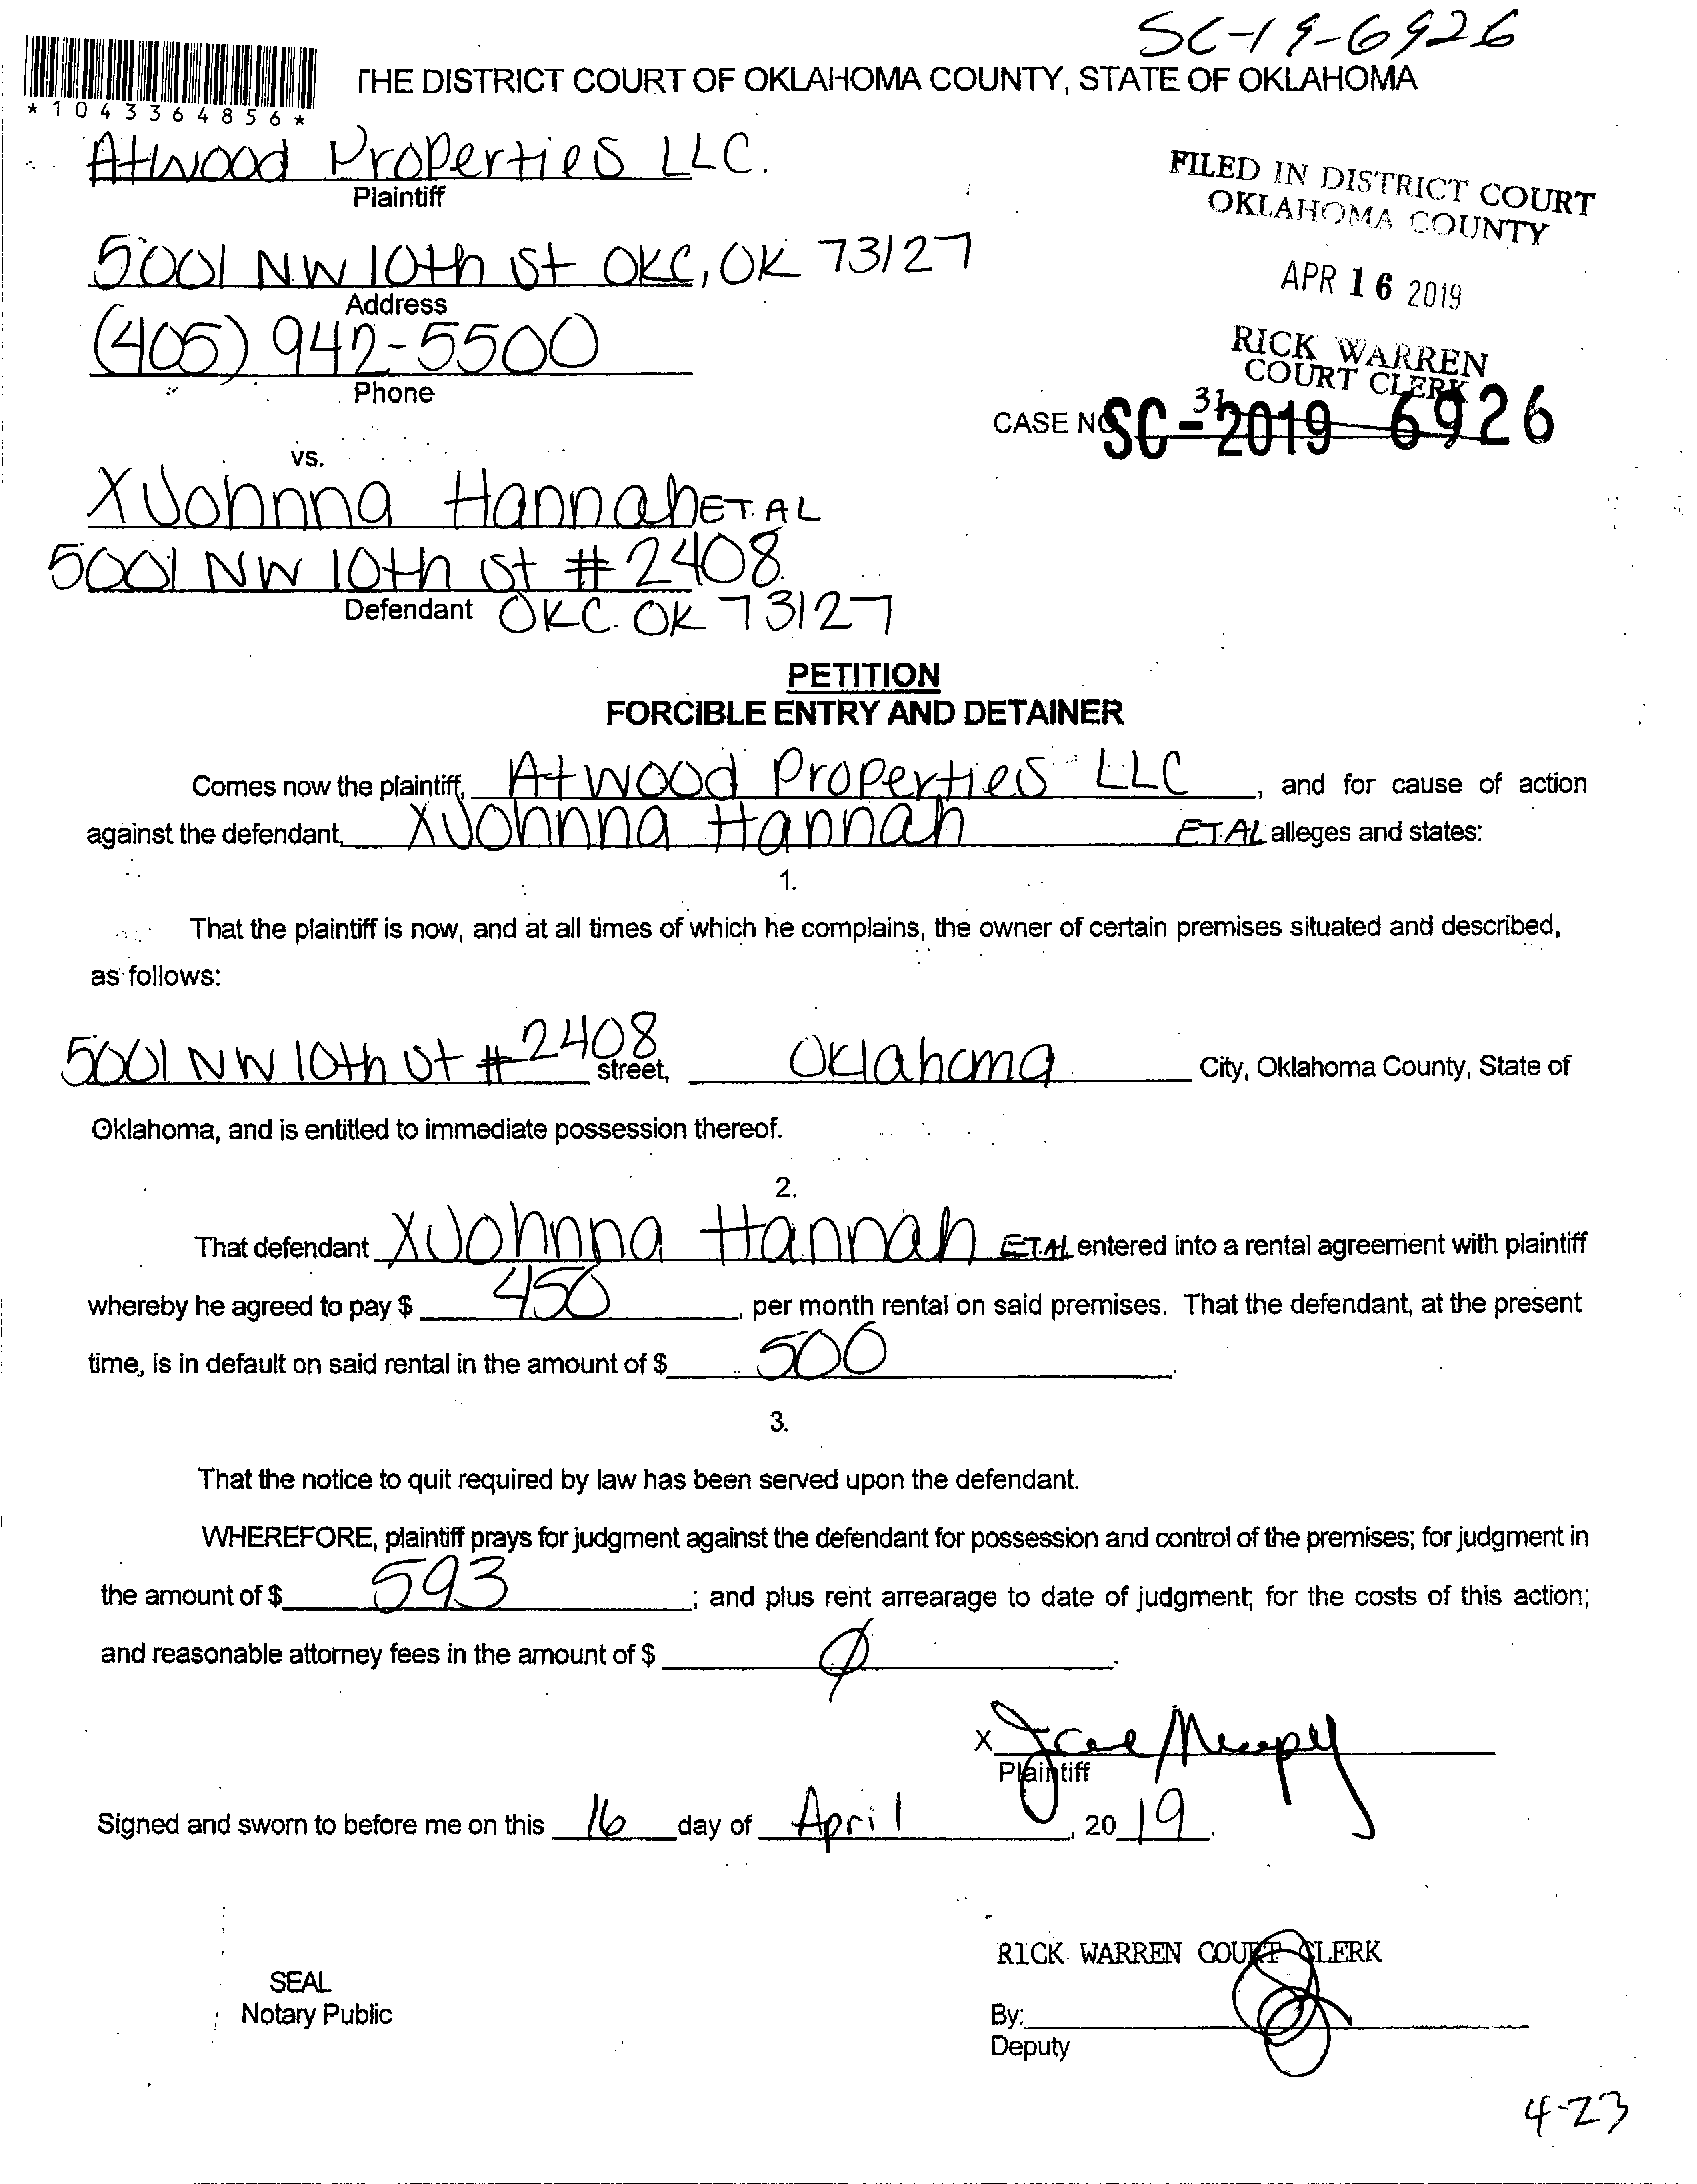 SC-19-6926
THE DISTRICT COURT OF OKLAHOMA COUNTY, STATE OF OKLAHOMA
*1043364856*
Atwood Properties LLC.
Plaintiff
FILED IN DISTRICT COURT
OKLAHOMA COUNTY
5001 NW 10th St OKC, OK 73127
Address
APR 16 2019
(405) 942-5500
Phone
RICK WARREN
COURT CLERK
31
CASE NO SC-2019 6926
vs.
XJohnna Hannah ET. AL
5001 NW 10th St # 2408
Defendant OKC. OK 73127
PETITION
FORCIBLE ENTRY AND DETAINER
Comes now the plaintiff, Atwood Properties LLC, and for cause of action
against the defendant, XJohnna Hannah ET.AL alleges and states:
1.
That the plaintiff is now, and at all times of which he complains, the owner of certain premises situated and described,
as follows:
5001 NW 10th St # 2408 street, Oklahoma City, Oklahoma County, State of
Oklahoma, and is entitled to immediate possession thereof.
2.
That defendant XJohnna Hannah ET.AL entered into a rental agreement with plaintiff
whereby he agreed to pay $ 450, per month rental on said premises. That the defendant, at the present
time, is in default on said rental in the amount of $ 500.
3.
That the notice to quit required by law has been served upon the defendant.
WHEREFORE, plaintiff prays for judgment against the defendant for possession and control of the premises; for judgment in
the amount of $ 593; and plus rent arrearage to date of judgment; for the costs of this action;
and reasonable attorney fees in the amount of $ Ø.
X
Plaintiff
Signed and sworn to before me on this 16 day of April, 2019.
RICK WARREN COURT CLERK
SEAL
Notary Public
By:
Deputy
4-23